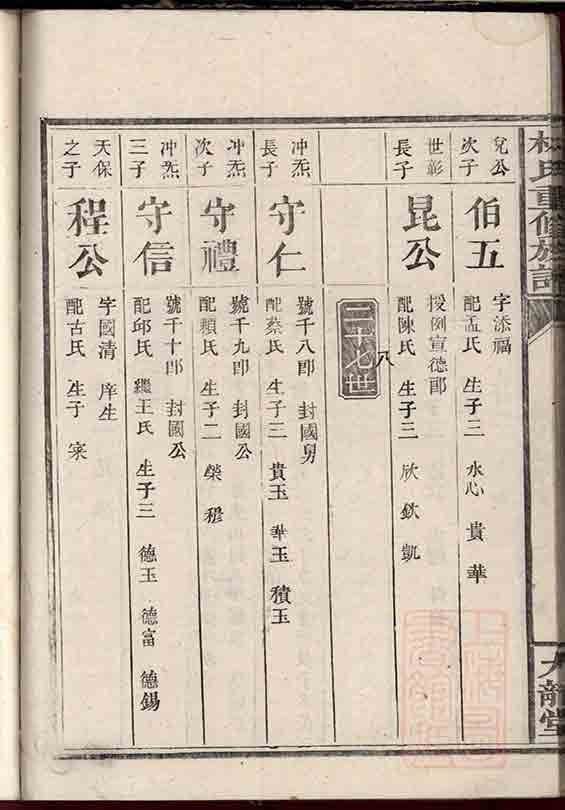 林氏重修族譜
九龍堂
兌公
次子
伯五
字添福
配孟氏 生子三 水心 貴 華
世彰
長子
昆公
授例宣德郎
配陳氏 生子三 欣 欽 凱
八
二十七世
冲炁
長子
守仁
號千八郎 封國舅
配蔡氏 生子三 貴玉 華玉 積玉
冲炁
次子
守禮
號千九郎 封國公
配賴氏 生子二 榮 穆
冲炁
三子
守信
號千十郎 封國公
配邱氏 繼王氏 生子三 德玉 德富 德錫
天保
之子
程公
字國清 庠生
配古氏 生子 寀